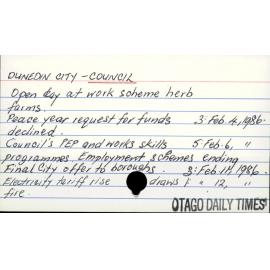 DUNEDIN CITY - COUNCIL
Open day at work scheme herb
farms.
Peace year request for funds 3: Feb. 4, 1986.
declined.
Council's PEP and works skills 5: Feb. 6, "
programmes Employment schemes ending
Final City offer to boroughs. 3: Feb. 11, 1986.
Electricity tariff rise draws 1: " 12, "
fire.
OTAGO DAILY TIMES